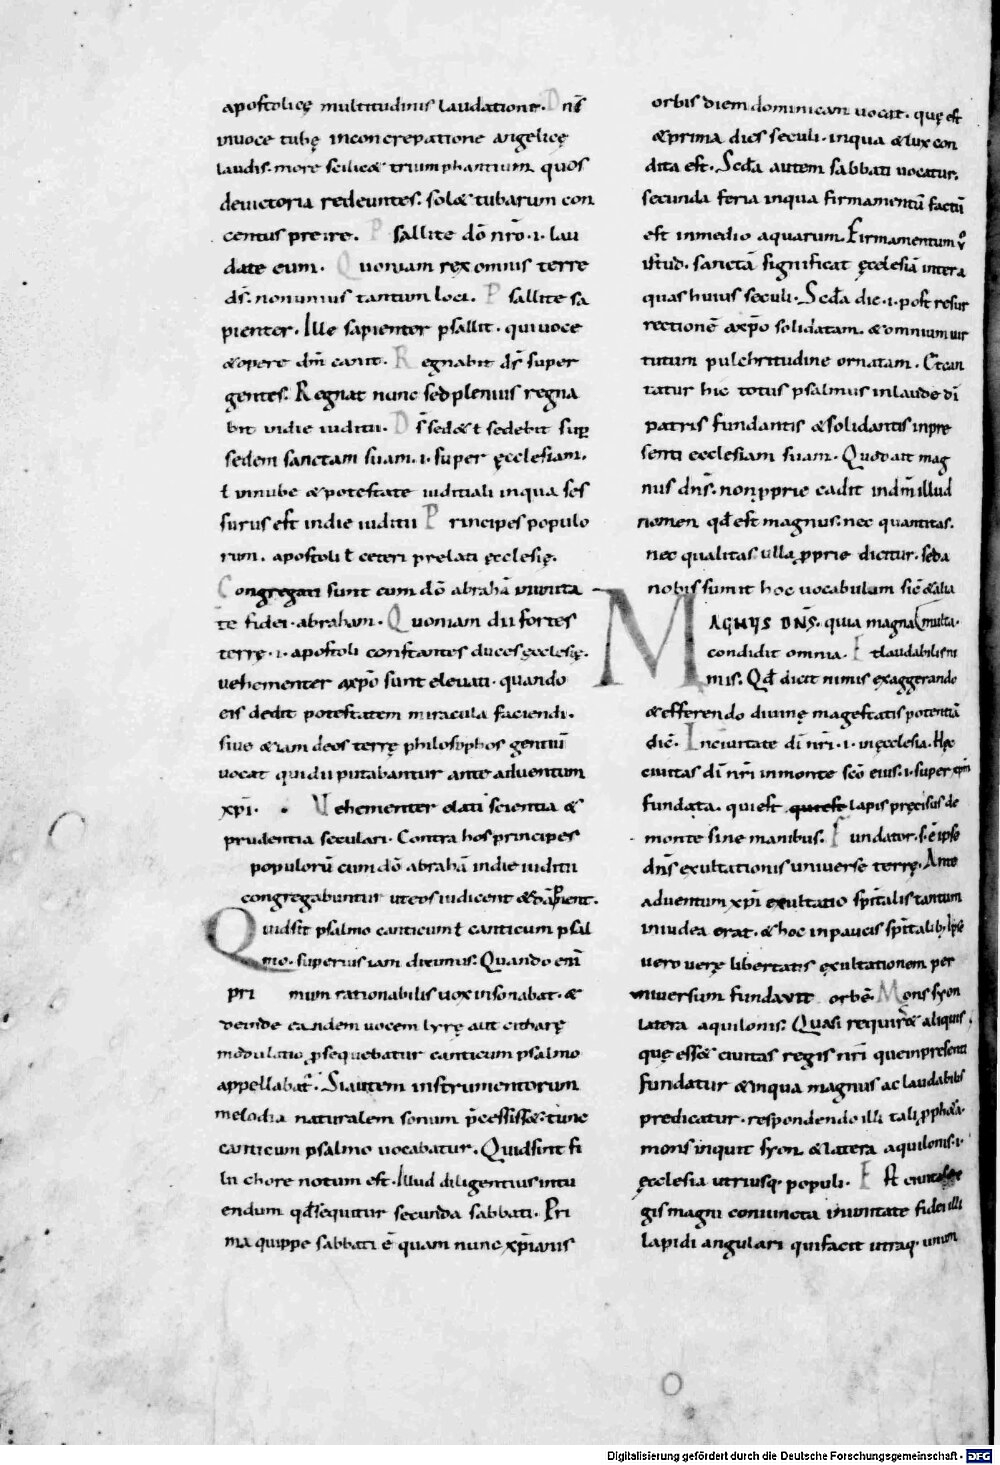 apostolicę multitudinis laudatione. Dn̄s
inuoce tubę inconcrepatione angelicę
laudis. more scilic& triumphantium quos
deuictoria redeuntes. sol& tubarum con
centus preire. Psallite dō nr̄o .i. lau
date eum. Quoniam rex omnis terre
ds̄. non unius tantum loci. Psallite sa
pienter. Ille sapienter psallit. qui uoce
& opere dm̄ canit. Regnabit ds̄ super
gentes. Regnat nunc sed plenius regna
bit indie iuditii. Ds̄ sed& ł sedebit sup̄
sedem sanctam suam .i. super ęcclesiam.
ł innube & potestate iuditiali inqua ses
surus est indie iuditii Principes populo
rum. apostoli ł ceteri prelati ęcclesię.
Congregati sunt cum dō abrahā inunita
te fidei. abraham. Quoniam dii fortes
terrę .i. apostoli constantes duces ęcclesię.
uehementer axp̄o sunt eleuati. quando
eis dedit potestatem miracula faciendi.
siue &iam deos terrę philosophos gentiū
uocat qui dii putabantur ante aduentum
xp̄i. Vehementer elati scientia &
prudentia seculari. Contra hos principes
populorū cum dō abrahā indie iuditii
congregabuntur ut eos iudicent & dāpnent.
Quid sit psalmo canticum ł canticum psal
mo. superius iam diximus. Quando enī
pri mum rationabilis uox insonabat. &
deinde eandem uocem lyrę aut citharę
modulatio ꝓsequebatur canticum psalmo
appellabat. Siautem instrumentorum
melodia naturalem sonum p̄cessiss&. tunc
canticum psalmo uocabatur. Quid sint fi
lii chore notum est. Illud diligentius intu
endum qđ sequitur secunda sabbati. Pri
ma quippe sabbati ē quam nunc xp̄ianis
orbis diem dominicam uocat. quę est
& prima dies seculi. inqua & lux con
dita est. Scđa autem sabbati uocatur.
secunda feria inqua firmamentū factū
est inmedio aquarum. Firmamentum ů
istud. sanctā significat ęcclesiā inter a
quas huius seculi. Scđa die .i. post resur
rectionē axp̄o solidatam. & omnium uir
tutum pulchritudine ornatam. Cantan
tatur hic totus psalmus inlaude dī
patris fundantis & solidantis inpre
senti ecclesiam suam. Quod ait mag
nus dn̄s. non ꝓprie cadit indm̄ illud
nomen qđ est magnus. nec quantitas.
nec qualitas ulla ꝓprie dicitur. sed a
nobis sumit hoc uocabulum sic & alia
MAGNUS DN̄S. quia magna multa.
condidit omnia. Et laudabilis ni
mis. Qđ dicit nimis exaggerando
& efferendo diuinę magestatis potentiā
dic̄. Inciuitate dī nr̄i .i. in ęcclesia. Hęc
ciuitas dī nr̄i inmonte scō eius .i. super xp̄m
fundata. qui est quiest lapis pręcisus de
monte sine manibus. Fundator .s. ē ipse
dn̄s exultationis uniuerse terrę. Ante
aduentum xp̄i exultatio spiritalis tantum
iniudea erat. & hoc inpaucis spiritalib; Ipse
uero uerę libertatis exultationem per
uniuersum fundauit orbē. Mons syon
latera aquilonis. Quasi requirer& aliquis
quę ess& ciuitas regis nr̄i quem presenti
fundatur & inqua magnus ac laudabilis
predicatur. respondendo illi tali ꝓph&a.
mons inquit syon & latera aquilonis .i.
ęcclesia utriusq; populi. Est ciuitas re
gis magni coniuncta inunitate fidei illi
lapidi angulari qui facit utraq; unum